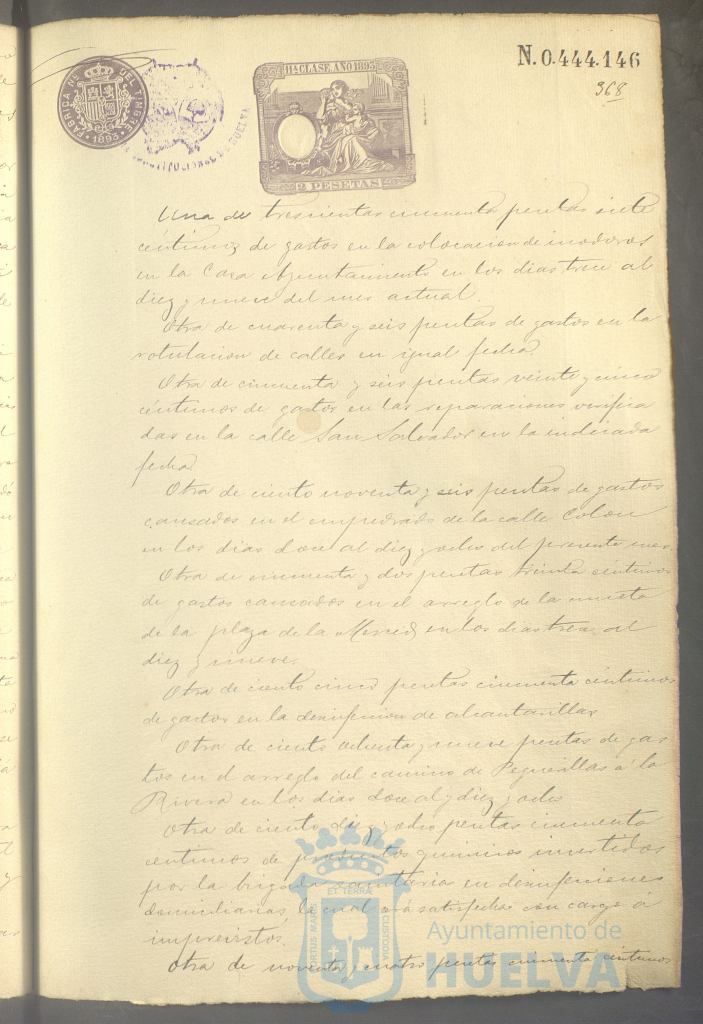 N. 0.444.146
368
11ª CLASE. AÑO 1893
FABRICA NL. DEL TIMBRE
1893
2 PESETAS
Una de trescientas cincuenta pesetas siete
céntimos de gastos en la colocacion de inodoros
en la Casa Ayuntamiento en los dias trece al
diez y nueve del mes actual.
Otra de cuarenta y seis pesetas de gastos en la
rotulacion de calles en igual fecha.
Otra de cincuenta y seis pesetas veinte y cinco
céntimos de gastos en las reparaciones verifica
das en la calle San Salvador en la indicada
fecha.
Otra de ciento noventa y seis pesetas de gastos
causados en el empedrado de la calle Colon
en los dias doce al diez y ocho del presente mes.
Otra de cincuenta y dos pesetas treinta centimos
de gastos causados en el arreglo de la
de la plaza de la Merced en los dias trece al
diez y nueve.
Otra de ciento cinco pesetas cincuenta céntimos
de gastos en la desinfeccion de alcantarillas
Otra de ciento ochenta y nueve pesetas de gas
tos en el arreglo del camino de Peguerillas á la
Rivera en los dias doce al diez y ocho
Otra de ciento diez y ocho pesetas cincuenta
centimos de productos quimicos invertidos
por la brigada sanitaria en desinfecciones
domiciliarias, la cual será satisfecha con cargo á
imprevistos.
Otra de noventa y cuatro pesetas cincuenta céntimos
ET TERRA
PORTUS MARIS
CUSTODIA
Ayuntamiento de
HUELVA